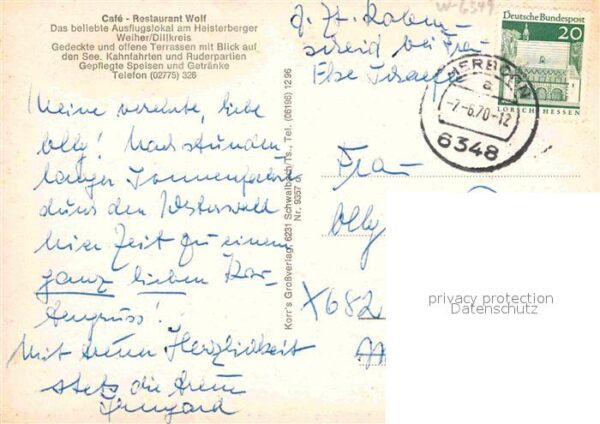 Café - Restaurant Wolf
Das beliebte Ausflugslokal am Heisterberger
Weiher/Dillkreis
Gedeckte und offene Terrassen mit Blick auf
den See. Kahnfahrten und Ruderpartien
Gepflegte Speisen und Getränke
Telefon (02775) 326
Meine verehrte, liebe
Olly! Nach stunden
langer Sonnenfahrt
durch den Westerwald
hier Zeit zu einem
ganz lieben Kar-
tengruss!
Mit treuer Herzlichkeit
stets die treue
Irmgard
Korr's Großverlag, 6231 Schwalbach/Ts., Tel. (06196) 1296
Nr. 9357 o
z. Zt. Raben-
scheid bei Frau
Else
W-6349
Deutsche Bundespost
20
LORSCH HESSEN
HERBORN
a
-7.-6.70-12
6348
Frau
Olly
X682
privacy protection
Datenschutz